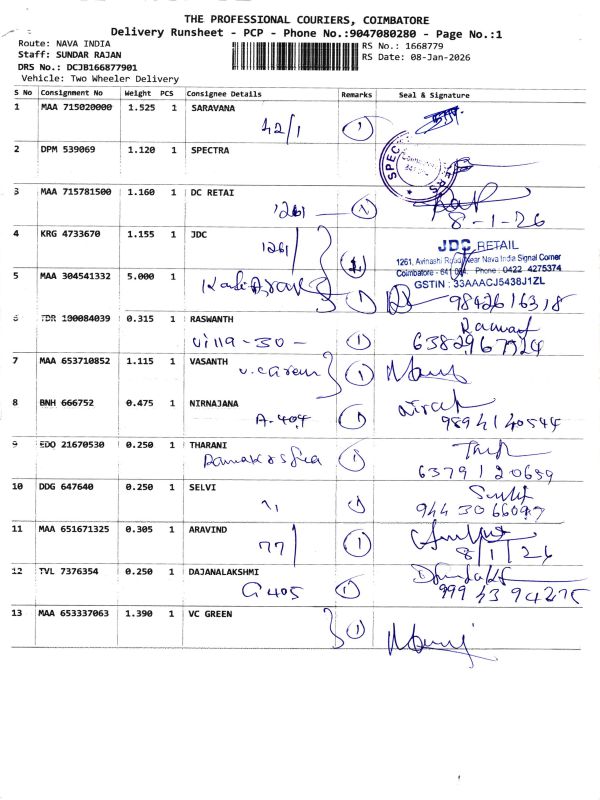 THE PROFESSIONAL COURIERS, COIMBATORE
Delivery Runsheet - PCP - Phone No.:9047080280 - Page No.:1
Route: NAVA INDIA
RS No.: 1668779
Staff: SUNDAR RAJAN
RS Date: 08-Jan-2026
DRS No.: DCJB166877901
Vehicle: Two Wheeler Delivery
S No Consignment No Weight PCS Consignee Details Remarks Seal & Signature
1 MAA 715020000 1.525 1 SARAVANA
42/1 1
2 DPM 539069 1.120 1 SPECTRA
SPEC
3 MAA 715781500 1.160 1 DC RETAI
1261 1
8-1-26
4 KRG 4733670 1.155 1 JDC
1261 1
JDC RETAIL
1261, Avinashi Road, Near Nava India Signal Corner
Coimbatore - 641 004. Phone : 0422 4275374
GSTIN : 33AAACJ5438J1ZL
5 MAA 304541332 5.000 1
1 9842616318
6 TDR 100084039 0.315 1 RASWANTH
villa-30- 1
7 MAA 653710852 1.115 1 VASANTH
v.careen 1
8 BNH 666752 0.475 1 NIRNAJANA
A-404 1 9894140544
9 EDO 21670530 0.250 1 THARANI
1 6379120659
10 DDG 647640 0.250 1 SELVI
11 1
11 MAA 651671325 0.305 1 ARAVIND
77 1
8/1/26
12 TVL 7376354 0.250 1 DAJANALAKSHMI
G405 1
13 MAA 653337063 1.390 1 VC GREEN
1